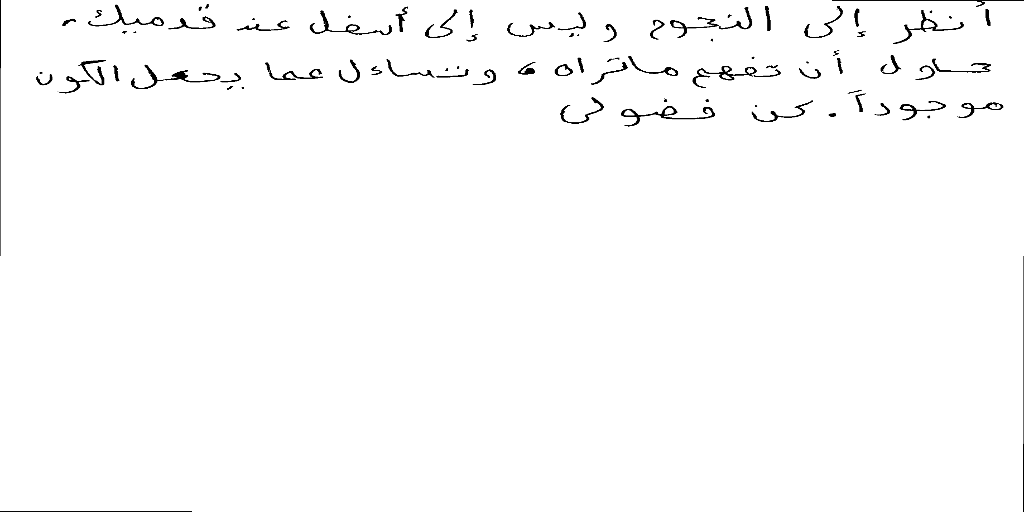 أنظر إلى النجوم وليس إلى أسفل عند قدميك.
حاول أن تفهم ماتراه، وتساءل عما يجعل الكون
موجوداً. كن فضولى